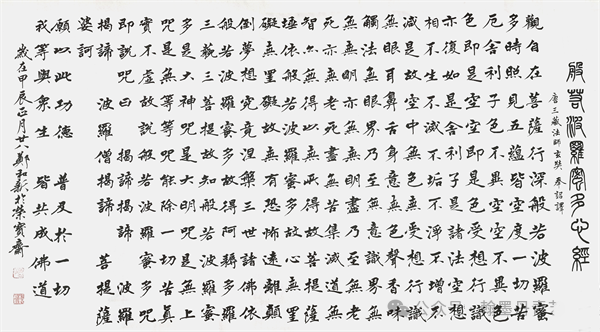 般若波羅蜜多心經
唐三藏法師玄奘 奉詔譯
觀自在菩薩行深般若波羅蜜
多時照見五蘊皆空度一切苦
厄舍利子色不異空空不異色
色即是空空即是色受想行識
亦復如是舍利子是諸法空
相不生不滅不垢不淨不增不
減是故空中無色無受想行識
無眼耳鼻舌身意無色聲香味
觸法無眼界乃至無意識界
無無明亦無無明盡乃至無老
死亦無老死盡無苦集滅道無
智亦無得以無所得故菩提薩
埵依般若波羅蜜多故心無
罣礙無罣礙故無有恐怖遠離顛
倒夢想究竟涅槃三世諸佛依
般若波羅蜜多故得阿耨多羅
三藐三菩提故知般若波羅蜜
多是大神咒是大明咒是無上
咒是無等等咒能除一切苦真
實不虛故說般若波羅蜜多咒
即說咒曰 揭諦揭諦 波羅
揭諦 波羅僧揭諦 菩提薩
婆訶
願以此功德 普及於一切
我等與眾生 皆共成佛道
歲在甲辰正月廿八鄭和新於榮寶齋
公众号·翰墨丹青